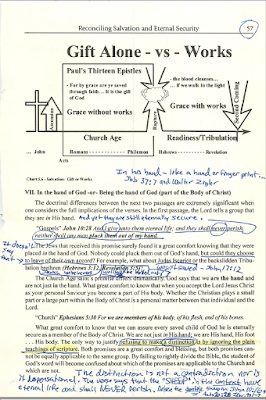 Reconciling Salvation and Eternal Security
57
Gift Alone - vs - Works
Paul's Thirteen Epistles
- For by grace are ye saved
through faith... it is the gift
of God
Grace without works
... the blood cleanses...
... if we walk in the light
Grace with works
Ascension
Second Coming
Church Age
Readiness/Tribulation
... John
Romans - - - - - - - - - - Philemon
Hebrews - - - - - - - Revelation
Acts
In two hand - like a hand or finger print.
Job 37:7 and Walter Zigler
Chart 8.6 - Salvation: Gift or Works
VII. In the hand of God -or- Being the hand of God (part of the Body of Christ)
The doctrinal differences between the next two passages are extremely significant when
one considers the full implications of the verses. In the first passage, the Lord tells a group that
they are in His hand. And yet they are still eternally secure.
"Gospels" John 10:28 And I give unto them eternal life; and they shall never perish,
neither shall any man pluck them out of my hand.
It doesn't
say that
The Jews that received this promise surely found it a great comfort knowing that they were
placed in the hand of God. Nobody could pluck them out of God's hand, but could they choose
to leave of their own accord? For example, what about Judas Iscariot or the backslidden Tribu-
lation brethren (Hebrews 3:12, Revelation 2:5)?
never saved - John 17:12
The Church Age saint's promise differs dramatically. God says that we are the hand and
are not just in the hand. What great comfort to know that when you accept the Lord Jesus Christ
as your personal Saviour you become a part of His body. Whether the Christian plays a small
part or a large part within the Body of Christ is a matter between that individual and the
Lord.
"Church" Ephesians 5:30 For we are members of his body, of his flesh, and of his bones.
What great comfort to know that we can assure every saved child of God he is eternally
secure as a member of the Body of Christ. We are not just in His hand; we are His hand, His foot
. . . His body. The only way to justify refusing to make a distinction is by ignoring the plain
teachings of scripture. Both promises are a great comfort and blessing, but both promises can-
not be equally applicable to the same group. By failing to rightly divide the Bible, the student of
God's word will become confused about which of the promises are applicable to the Church and
which are not.
The distinction is not a contradiction nor is
it dispensational. The verse says that the "SHEEP" in the context have
eternal life and shall NEVER perish.